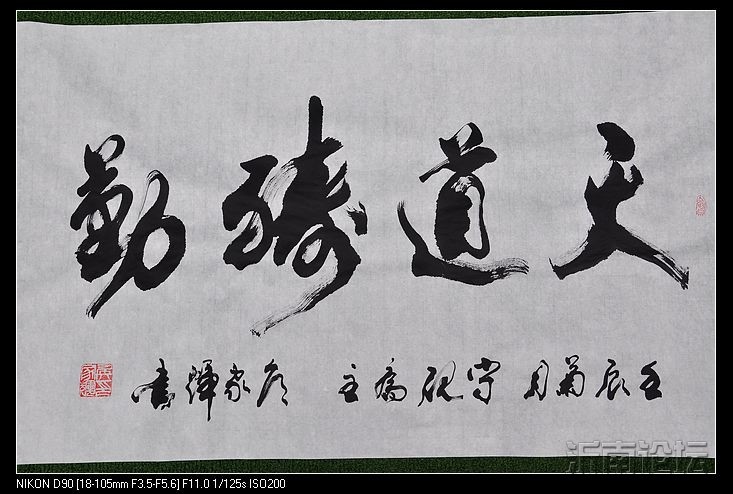 天道酬勤
壬辰菊月 砚斋主 家辉书
沂南论坛
NIKON D90 [18-105mm F3.5-F5.6] F11.0 1/125s ISO200